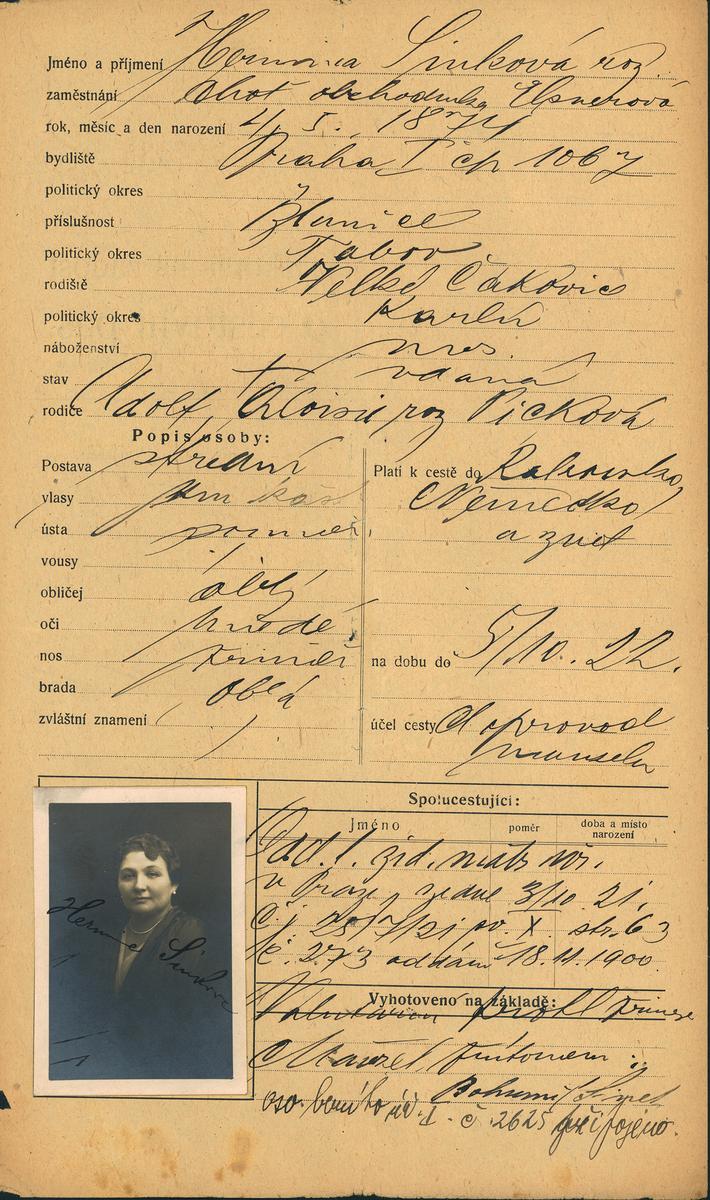 Jméno a příjmení Hermina Sinková roz.
zaměstnání choť obchodníka Elsnerová
rok, měsíc a den narození 4/5. 1871
bydliště Praha I čp 1067
politický okres
příslušnost Žlunice
politický okres Tabor
rodiště Velké Čakovic
politický okres Karlín
náboženství mos.
stav vdaná
rodiče Adolf, Aloisie roz Picková
Popis osoby:
Postava střední
vlasy tm kašt
ústa poměr.
vousy /
obličej oblý
oči hnědé
nos přiměř
brada oblá
zvláštní znamení /
Platí k cestě do Rakousko,
Německo
a zpět
na dobu do 5/10. 22.
účel cesty doprovod
manžela
Spolucestující:
Jméno poměr doba a místo narození
Odd. l. žid. matr. úř.
v Praze, ze dne 3/10 21,
č. j. 23 /21 sv. X. str. 63
č. 273 oddáni 18. 11. 1900.
Vyhotoveno na základě:
Manžel
Bohumil
oso. I. č 2625 připojeno.
Hermine Sinkova